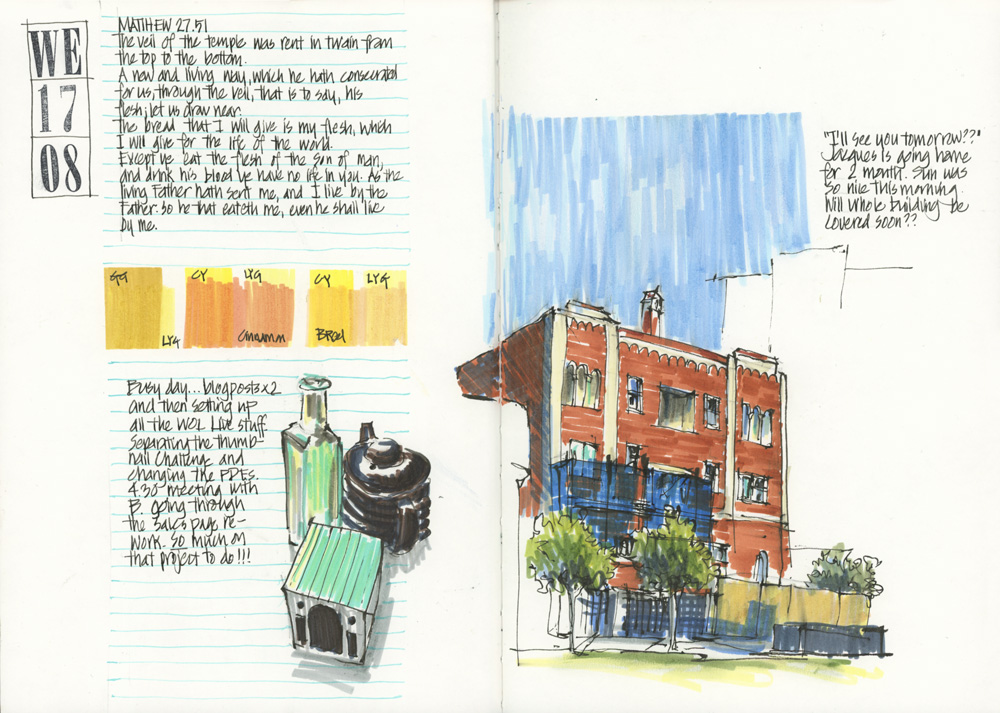 WE
17
08
MATTHEW 27.51
The veil of the temple was rent in twain from
the top to the bottom.
A new and living way, which he hath consecrated
for us, through the veil, that is to say, his
flesh; let us draw near.
The bread that I will give is my flesh, which
I will give for the life of the world.
Except ye eat the flesh of the son of man,
and drink his blood ye have no life in you. As the
living Father hath sent me, and I live by the
Father: so he that eateth me, even he shall live
by me.
GG
LYG
CY
LYG
Cinnamon
CY
LYG
Brod
Busy day... blogposts x2
and then setting up
all the WOL Live stuff.
Separating the thumb-
nail Challenge and
changing the PDFs.
4.30 meeting with
B. going through
the sales page re-
work. So much on
that project to do!!!
"I'll see you tomorrow??"
Jacques is going home
for 2 month. Sun was
so nice this morning.
Will whole building be
covered soon??